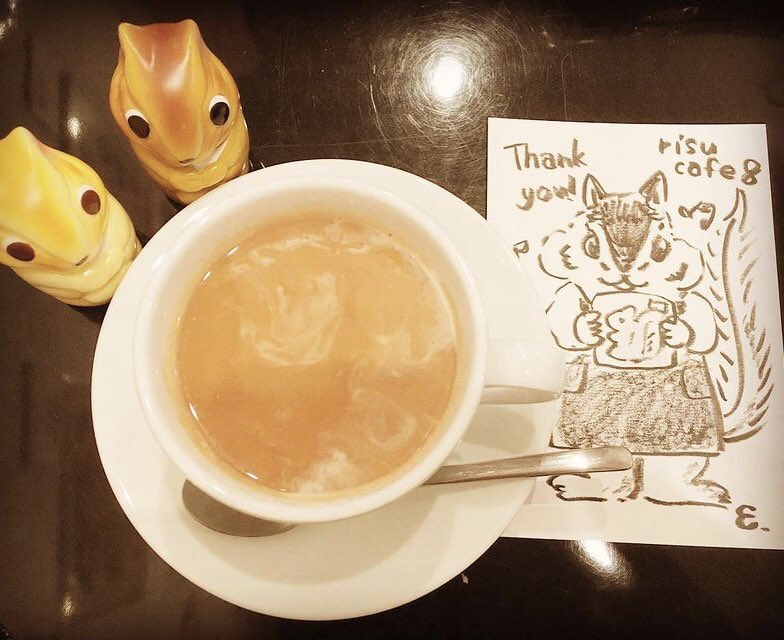 Thank
you!
risu
cafe 8
E.